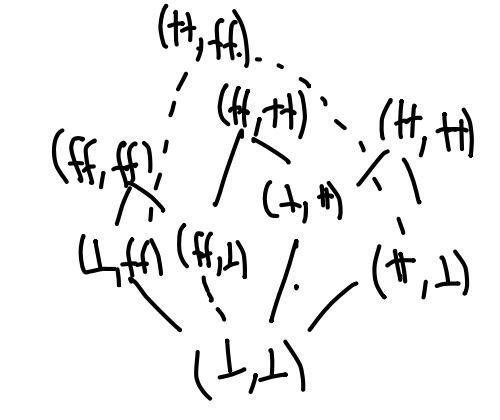 (tt, ff)
(ff, tt)
(tt, tt)
(ff, ff)
(⊥, tt)
(⊥, ff)
(ff, ⊥)
(tt, ⊥)
(⊥, ⊥)